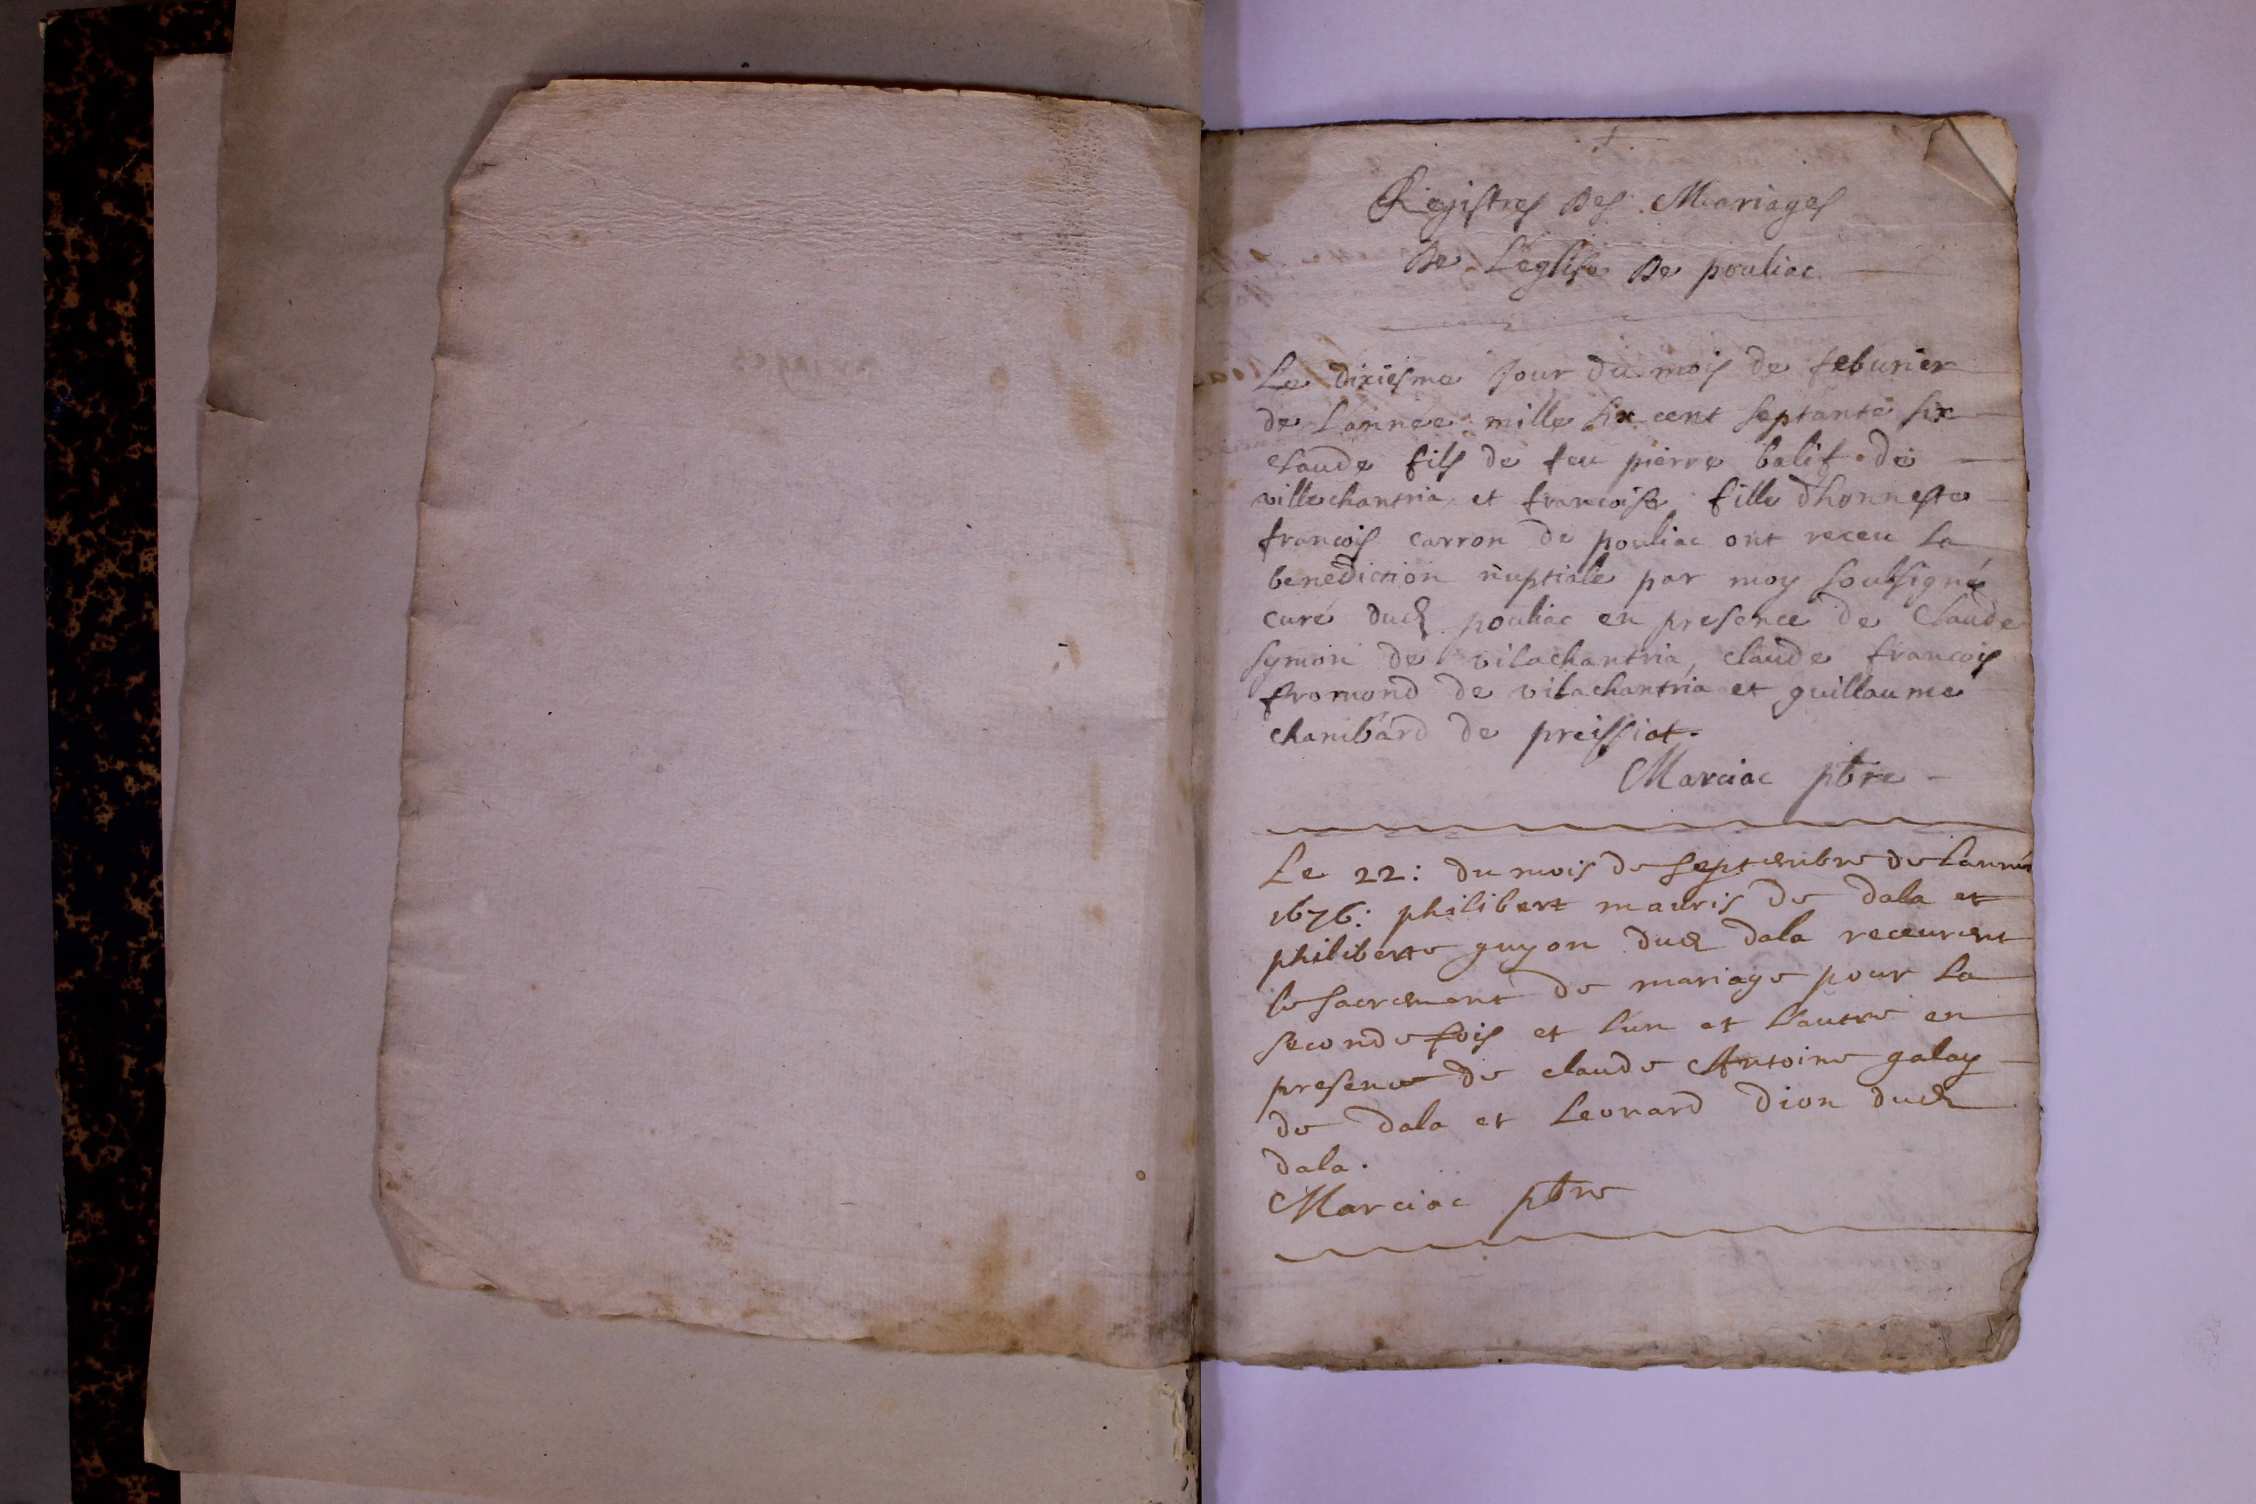 Registres des Mariages
de L'eglise de pouliac
Le dixiesme Jour du mois de feburier
de Lannee mille six cent septante six
Claude fils de feu pierre balif de
villechantria et francoise fille dhonneste
francois carron de pouliac ont receu La
benediction nuptiale par moy soubsigné
curé dud pouliac en presence de Claude
symon de vilachantria, claude francois
fromond de vilachantria et guillaume
chambard de preissiat.
Marciac pbre
Le 22: du mois de septembre de Lannée
1676: philibert mauris de dala et
philiberte guyon dud dala receurent
le sacrement de mariage pour La
seconde fois et Lun et Lautre en
presence de claude Antoine galay
de dala et Leonard dion dud
dala.
Marciac pbre